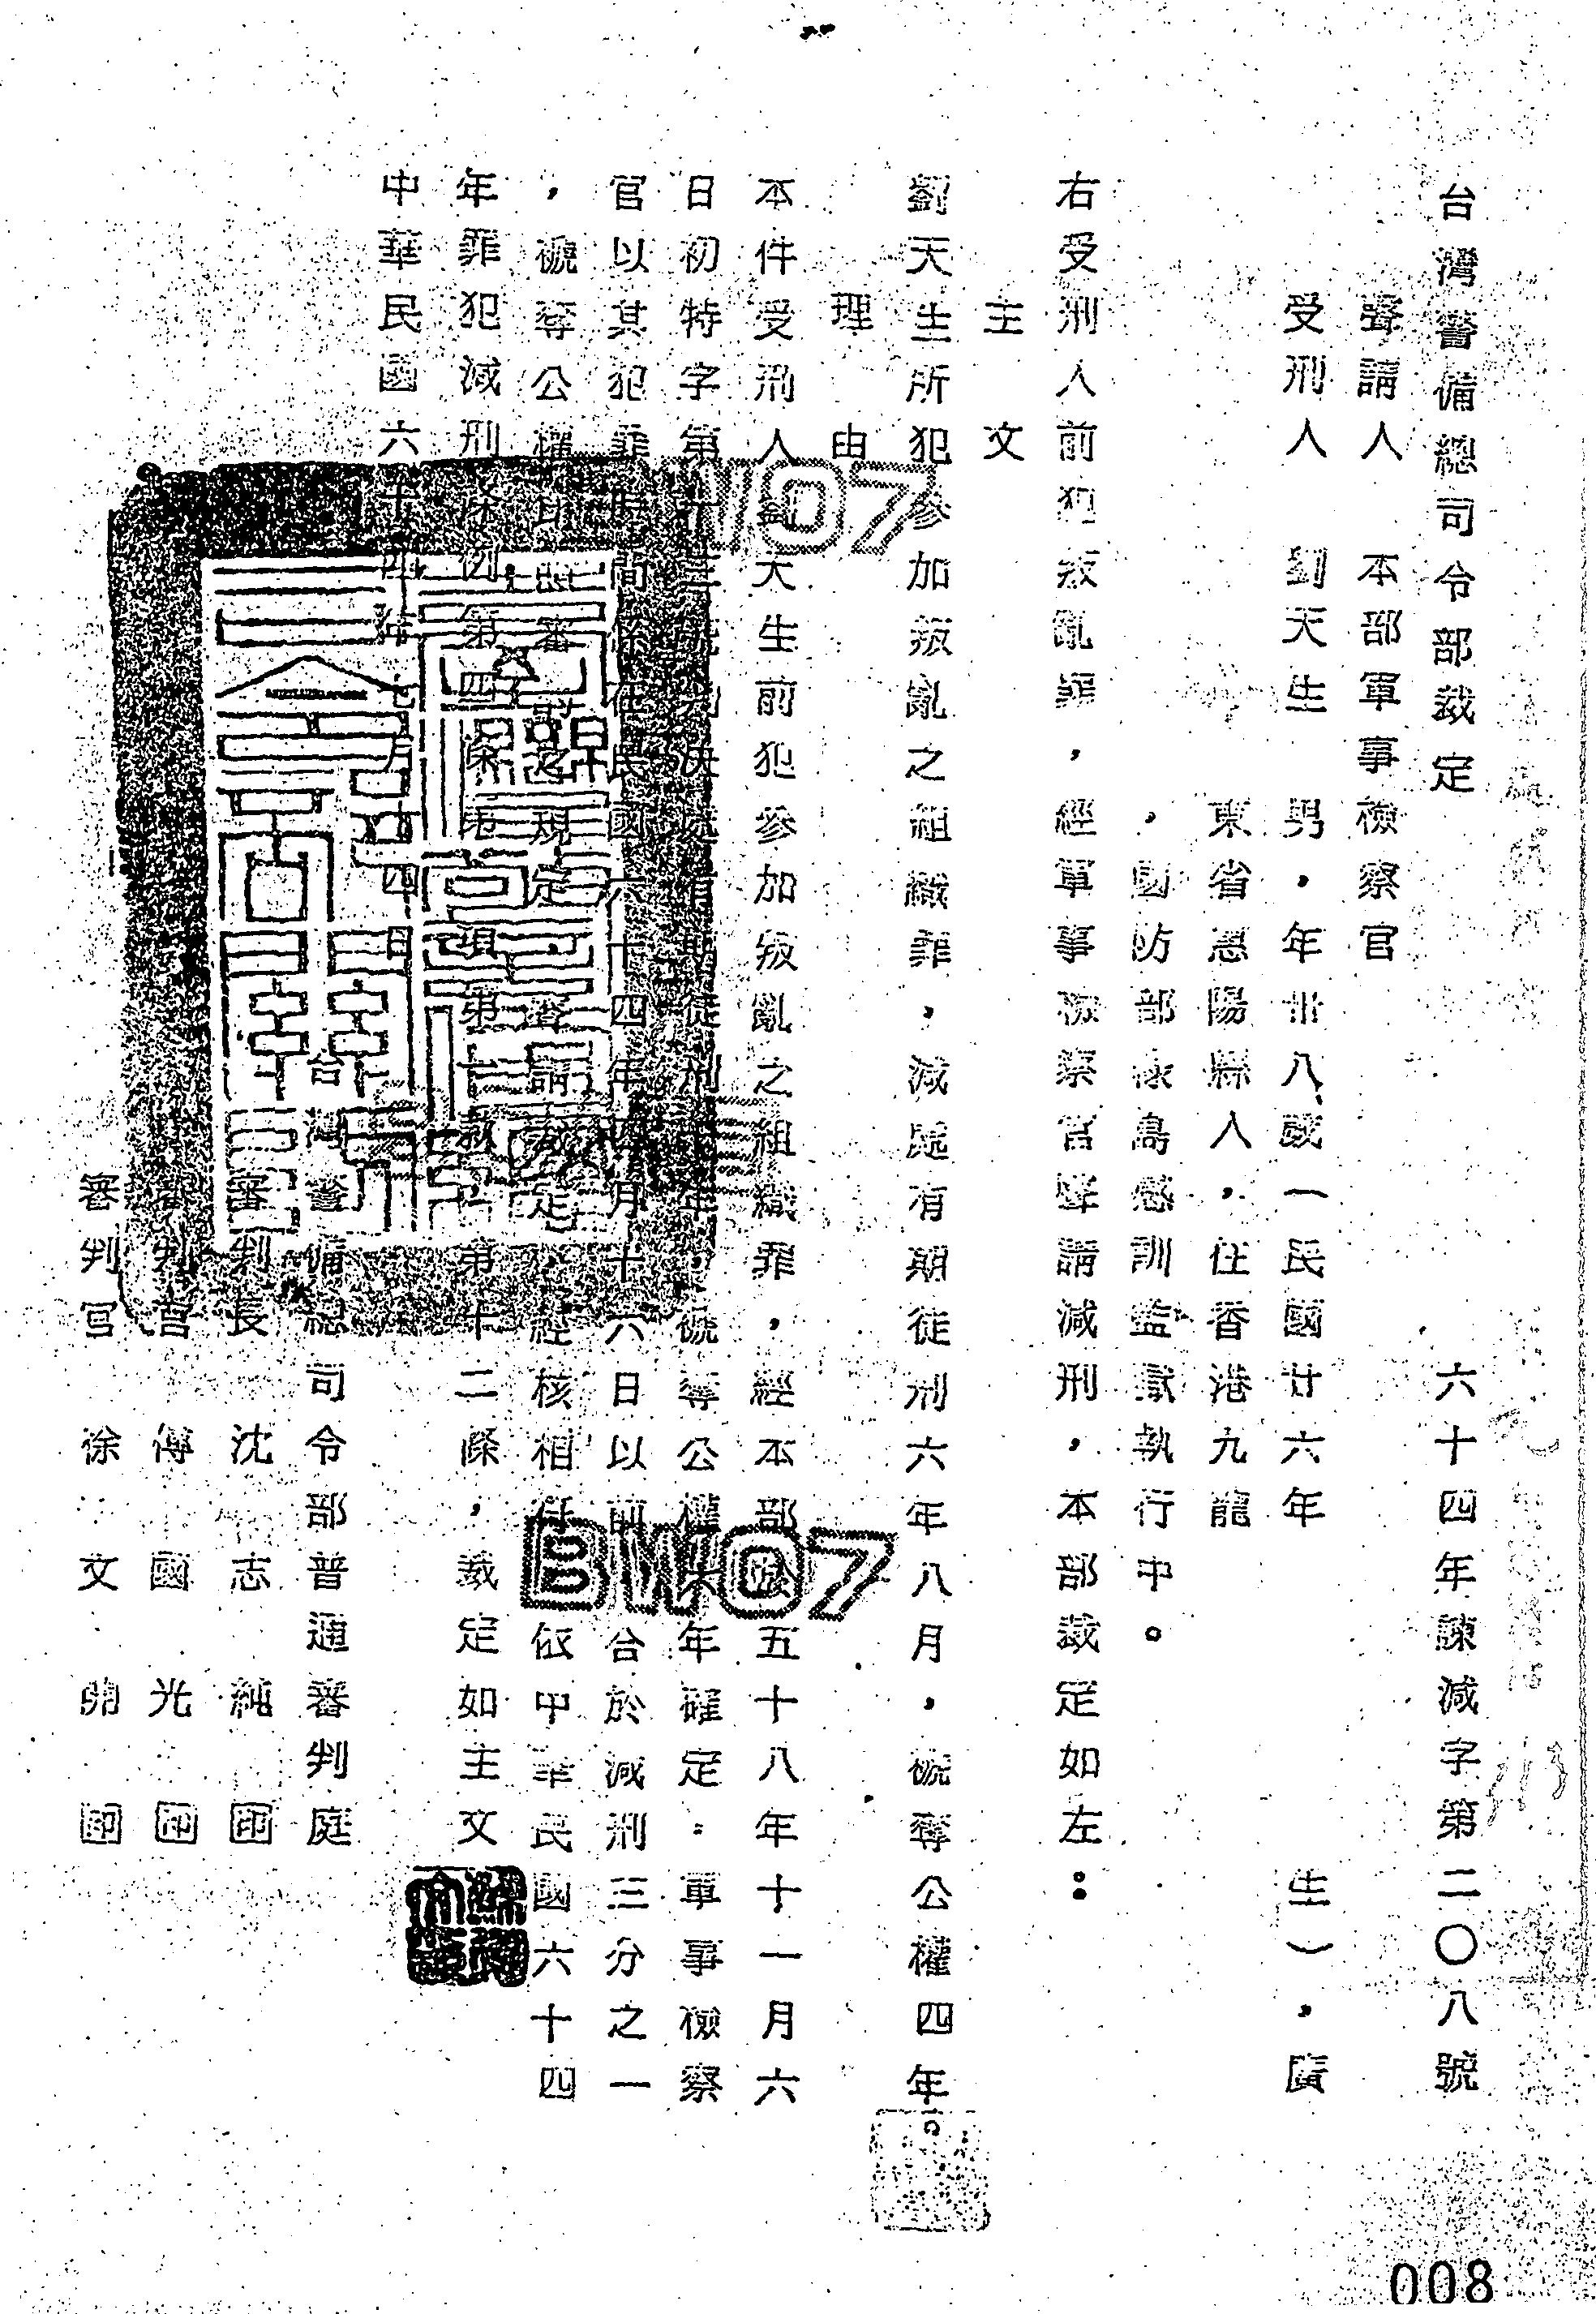 台灣警備總司令部裁定　六十四年諫減字第二〇八號
聲請人　本部軍事檢察官
受刑人　劉天生　男，年卅八歲（民國廿六年　生），廣
東省惠陽縣人，住香港九龍
，國防部綠島感訓監獄執行中。
右受刑人前犯叛亂罪，經軍事檢察官聲請減刑，本部裁定如左：
主文
劉天生所犯參加叛亂之組織罪，減處有期徒刑六年八月，褫奪公權四年。
理由
本件受刑人劉天生前犯參加叛亂之組織罪，經本部於五十八年十一月六
日初特字第　三號判決處有期徒刑　年，褫奪公權六年確定。軍事檢察
官以其犯罪時間係在民國六十四年四月十六日以前合於減刑三分之一
，褫奪公權　照審　之規定，聲請裁定，經核相符依中華民國六十四
年罪犯減刑條例第四條第　項第　款，第十二條，裁定如主文
中華民國六十四年七月十四日
台灣警備總司令部普通審判庭
審判長　沈志純　印
審判官　傅國光　印
審判官　徐文　印
BW07
008